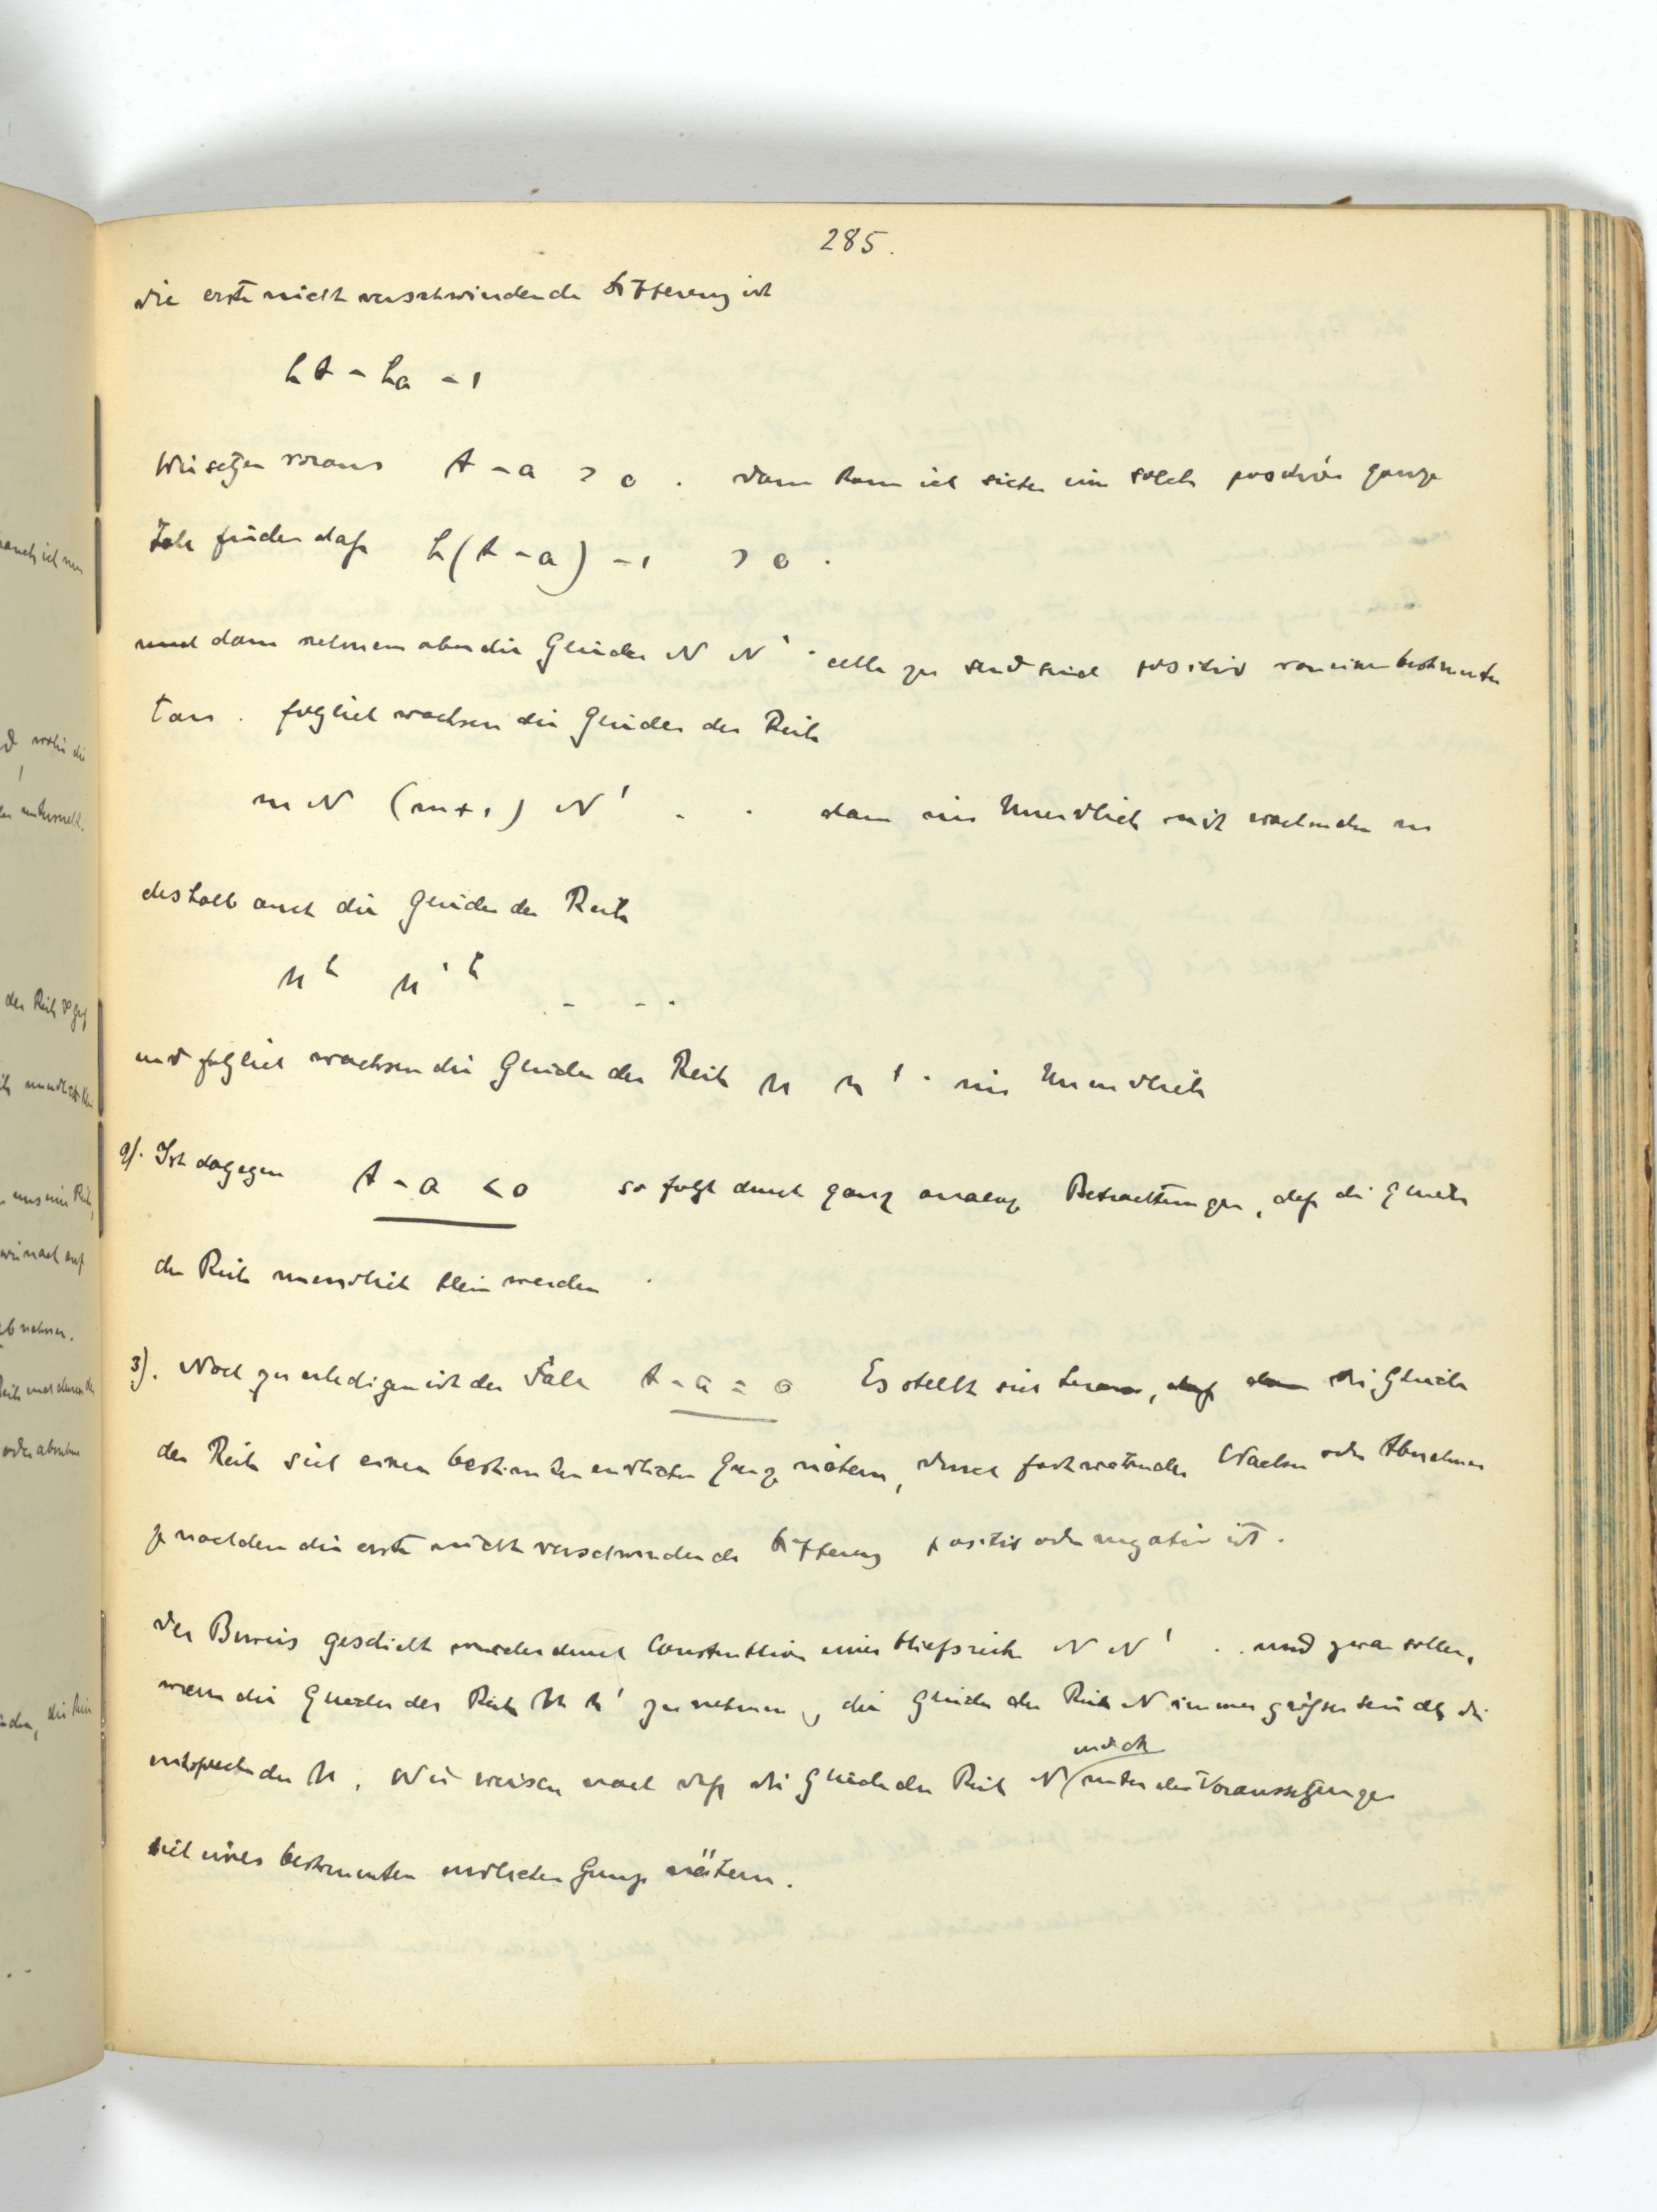 285.
die erste nicht verschwindende Differenz ist
hA - ha - 1
Wir setzen voraus A - a > 0. dann kann ich sicher eine solche positive ganze
Zahl finden daß h(A - a) - 1 > 0.
und dann nehmen aber die Glieder N N' alle zu und sind positiv von einem bestimmten
an. folglich wachsen die Glieder der Reihe
mN (m+1) N' . . dann ins Unendliche mit wachsenden m
deshalb auch die Glieder der Reihe
n^h n'^h - - .
und folglich wachsen die Glieder der Reihe n n' . ins Unendliche
2). Ist dagegen A - a < 0 so folgt durch ganz analoge Betrachtungen, daß die Glieder
der Reihe unendlich klein werden.
3). Noch zu erledigen ist der Fall A - a = 0 Es stellt sich heraus, daß die Glieder
der Reihe sich einer bestimmten endlichen Grenze nähern, durch fortwährendes Wachsen oder Abnehmen
je nachdem die erste nicht verschwindende Differenz positiv oder negativ ist.
Der Beweis geschieht wieder durch Construktion einer Hilfsreihe N N' . . und zwar sollen,
wenn die Glieder der Reihe n n' zunehmen, die Glieder der Reihe N immer größer sein als die
entsprechenden n. Wir weisen nach daß die Glieder der Reihe N unter den Voraussetzungen
sich einer bestimmten endlichen Grenze nähern.